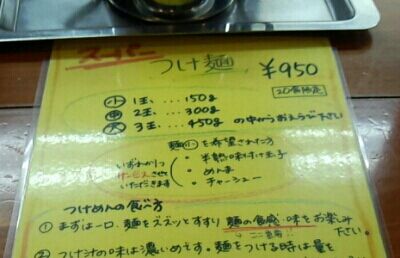 スーパー
つけ麺
¥950
20食限定
小 1玉、…150g
中 2玉、…300g
大 3玉、…450g の中からおえらび下さい
を希望された方
いずれか1つ
サービスさせて
いただきます
・半熟味付け玉子
・めんま
・チャーシュー
つけめんの食べ方
① まずは一口、麺をズズッとすすり麺の食感・味をお楽しみ
下さい。
ここ重要!!
② つけ汁の味は濃いめです。麺をつける時は量を